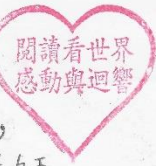 閱讀看世界
感動與迴響